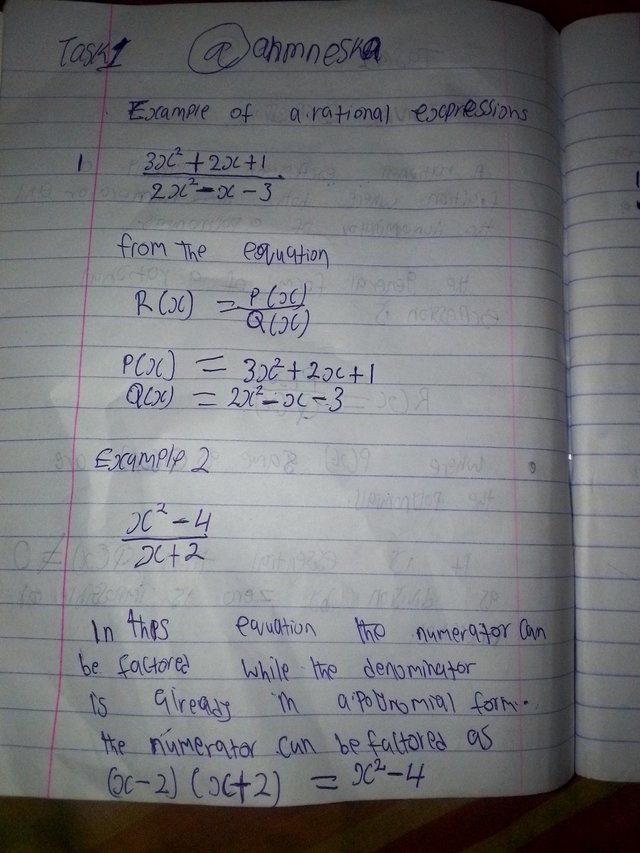 Task1 @ahmneska
Example of a rational expressions
1 3x² + 2x + 1
2x² - x - 3
from the equation
R(x) = P(x)
Q(x)
P(x) = 3x² + 2x + 1
Q(x) = 2x² - x - 3
Example 2
x² - 4
x + 2
In this equation the numerator can
be factored while the denominator
is already in a polnomial form.
the numerator can be factored as
(x-2) (x+2) = x² - 4